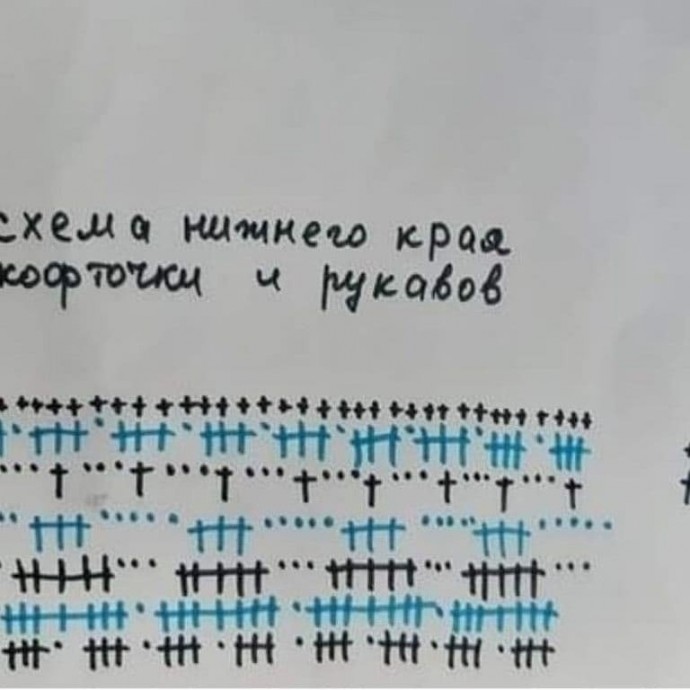 схема нижнего края
кофточки и рукавов